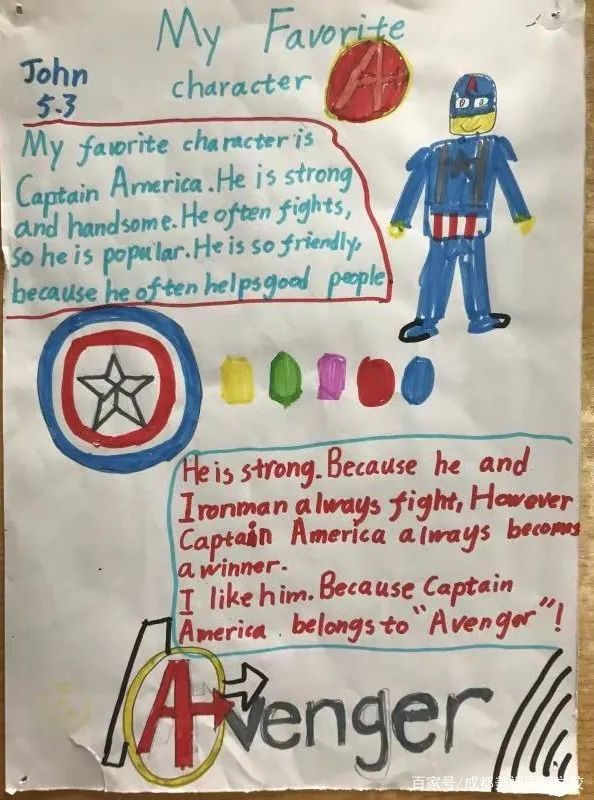 My Favorite
character
A
John
5.3
My favorite character is
Captain America. He is strong
and handsome. He often fights,
so he is popular. He is so friendly,
because he often helps good people
A
He is strong. Because he and
Ironman always fight, However
Captain America always becomes
a winner.
I like him. Because Captain
America belongs to "Avenger"!
Avenger
百家号/成都